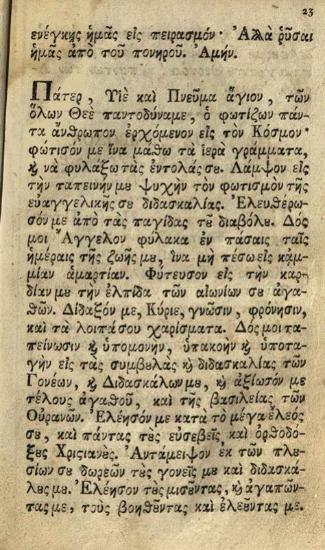 23
ενέγκης ἡμᾶς εἰς πειρασμόν· Ἀλλὰ ῥῦσαι
ἡμᾶς ἀπὸ τοῦ πονηροῦ. Ἀμήν.
Πάτερ, Υἱὲ καὶ Πνεῦμα ἅγιον, τῶν
ὅλων Θεὲ παντοδύναμε, ὁ φωτίζων πάν-
τα ἄνθρωπον ἐρχόμενον εἰς τὸν Κόσμον·
φώτισόν με ἵνα μάθω τὰ ἱερὰ γράμματα,
ϗ νὰ φυλάξω τὰς ἐντολάς σȣ. Λάμψον εἰς
τὴν ταπεινήν μȣ ψυχὴν τὸν φωτισμὸν τῆς
εὐαγγελικῆς σȣ διδασκαλίας. Ἐλευθέρω-
σόν με ἀπὸ τὰς παγίδας τȣ διαβόλȣ. Δός
μοι Ἄγγελον φύλακα ἐν πάσαις ταῖς
ἡμέραις τῆς ζωῆς μȣ, ἵνα μὴ πέσω εἰς κἀμ-
μίαν ἁμαρτίαν. Φύτευσον εἰς τὴν καρ-
δίαν μȣ τὴν ἐλπίδα τῶν αἰωνίων σȣ ἀγα-
θῶν. Δίδαξόν με, Κύριε, γνῶσιν, φρόνησιν,
καὶ τὰ λοιπά σου χαρίσματα. Δός μοι τα-
πείνωσιν ϗ ὑπομονήν, ὑπακοὴν ϗ ὑποτα-
γὴν εἰς τὰς συμβȣλὰς ϗ διδασκαλίας τῶν
Γονέων, ϗ Διδασκάλων μȣ, ϗ ἀξίωσόν με
τέλους ἀγαθοῦ, καὶ τῆς βασιλείας τῶν
Οὐρανῶν. Ἐλέησόν με κατὰ τὸ μέγα ἔλεός
σȣ, καὶ πάντας τοὺς εὐσεβεῖς καὶ ὀρθοδό-
ξȣς Χριϛιανȣς. Ἀντάμειψον ἐκ τῶν πλȣ-
σίων σȣ δωρεῶν τοὺς γονεῖς μȣ καὶ διδασκά-
λȣς μȣ. Ἐλέησον τȣς μισοῦντας, ϗ ἀγαπῶν-
τας με, τοὺς βοηθοῦντας καὶ ἐλεοῦντας με.